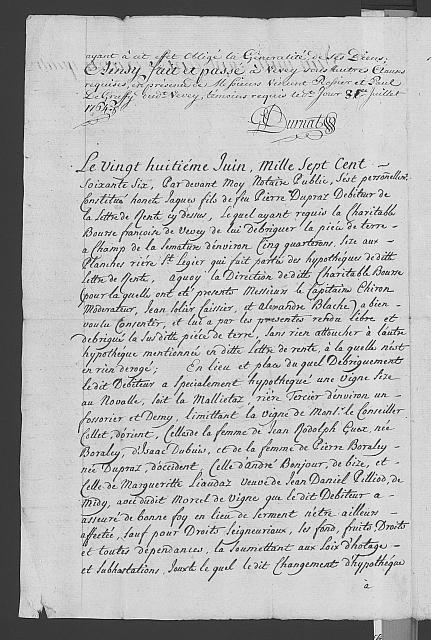 ayant à cet effet Obligé la Généralité de ses Biens;
Ainsy fait et passé à Vevey sous autres Clauses
requises, en présence de M. Sieurs Vincent et Paul
de Vevey, témoins requis le Jour Juillet
Durnat
Le Vingt huitiéme Juin, Mille Sept Cent –
Soixante Six, Par devant Moy Notaire Public, s'est personellemt
Constitué honet Jaques fils de feu Pierre Dupraz Debiteur de
la Lettre de Rente cy dessus, Lequel ayant requis la Charitable
Bourse françoise de Vevey de lui debriguer la piéce de terre –
à Champ de la Semature d'environ Cinq quarterons, Size aux
Planches riére St Legier qui fait partie des hypothéques de ditte
Lettre de Rente, aquoy la Direction de ditte Charitable Bourse
(pour la quelle ont été presents Messieurs le Capitaine Chiron
Moderateur, Jean Caissier, et Alexandre Blache) a bien –
voulu Consentir, et lui a par les presentes rendu libre et
debrigué la Susditte piéce de terre, Sans rien attoucher à l'autre
hypothéque mentionnée en ditte Lettre de rente, à la quelle n'est
en rien derogé; En lieu et place du quel Debriguement
le dit Debiteur a Specialement hypothequé une Vigne Size
au Novalle, soit la Mallietaz, riére Tercier d'environ un –
fossorier et Demy, limittant la vigne de Monsr le Conseiller
Collet d'orient, Celle de la femme de Jean Rodolph Guex née
Boraley, d'Isaac Dubuis, et de la femme de Pierre Boraley
née Dupraz d'occident, Celle d'André Bonjour, de bize, et –
Celle de Marguerite Veuve de Jean Daniel Pilliod, de
Midy, avec dudit Morcel de Vigne que le dit Debiteur a –
asseuré de bonne foy en lieu de Serment n'être ailleurs –
affectée, Sauf pour Droits Seigneuriaux, les fond, fruits, Droits
et toutes dépendances, la Soumettant aux Loix d'hotage –
et Subhastations, Jouxt le quel le dit Changement d'hypothéque
à